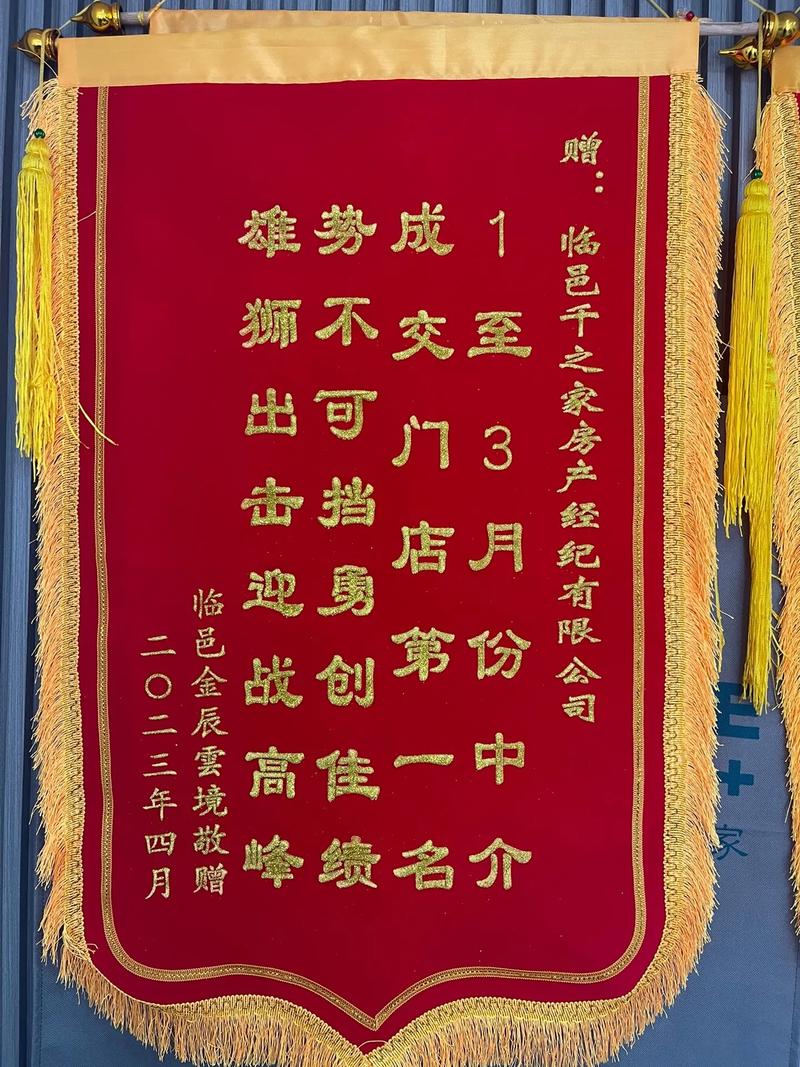 赠：临邑千之家房产经纪有限公司
1至3月份中介
成交门店第一名
势不可挡勇创佳绩
雄狮出击迎战高峰
临邑金辰雲境敬赠
二〇二三年四月
E+
家